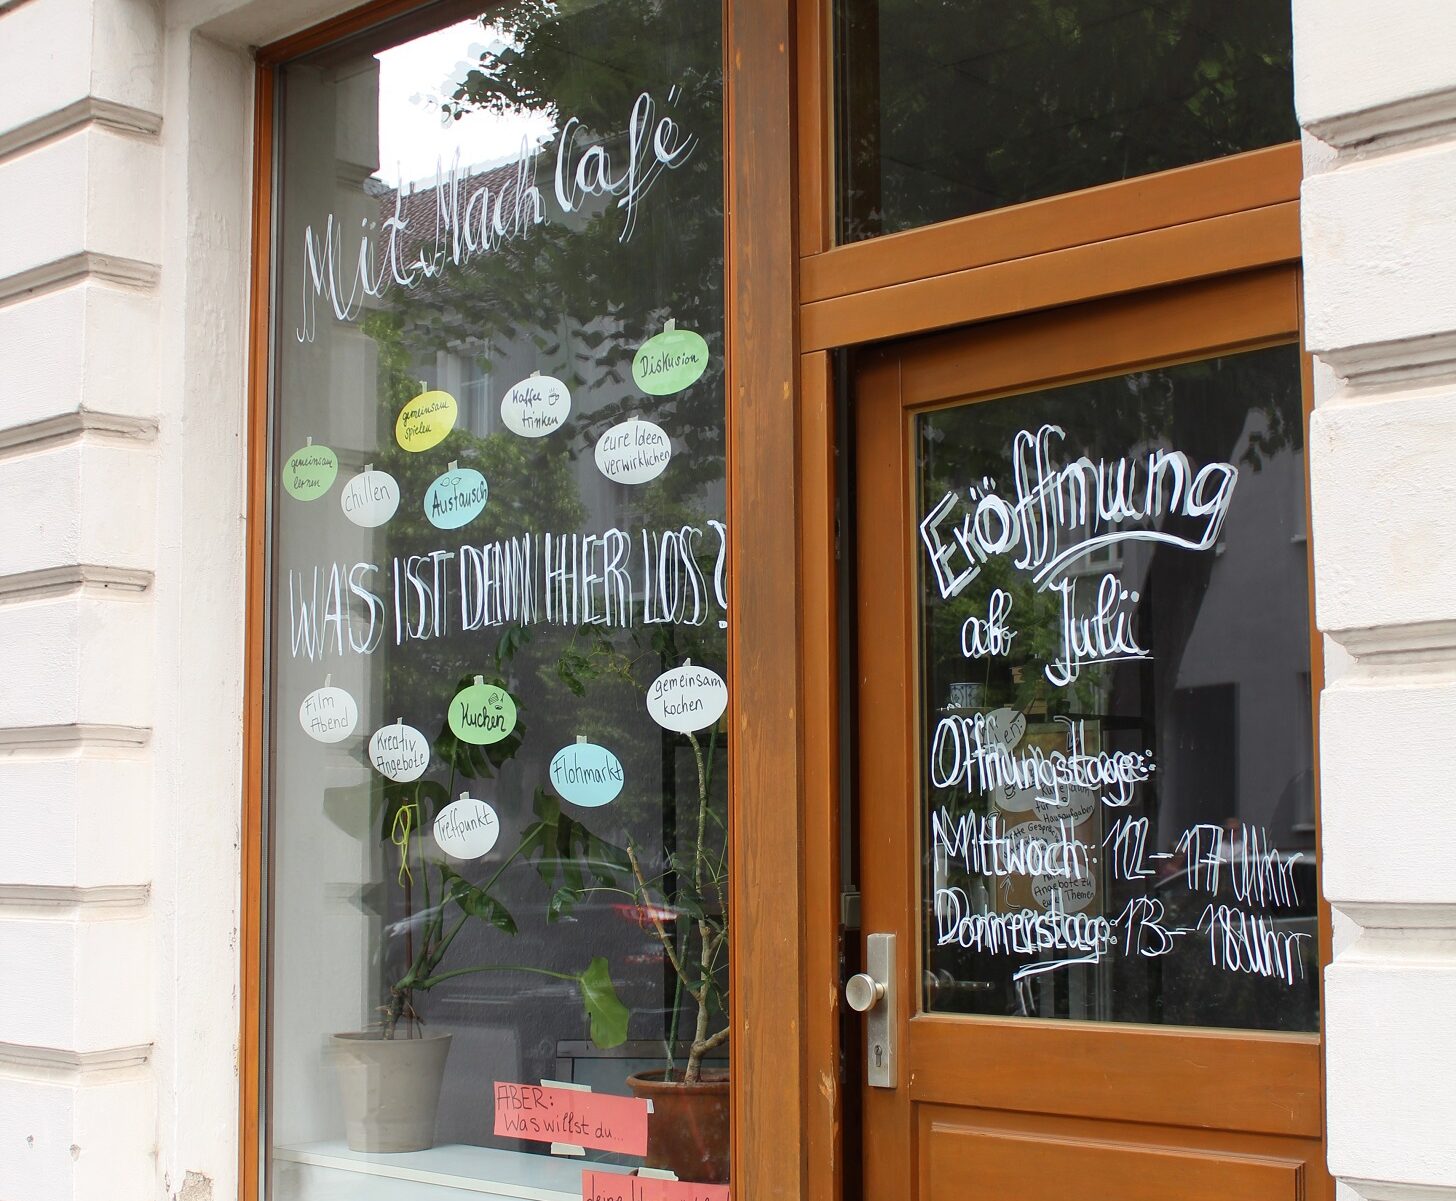 Mit Mach Café
Diskusion
gemeinsam
spielen
Kaffee
trinken
eure Ideen
verwirklichen
gemeinsam
lernen
chillen
Austausch
WAS IST DENN HIER LOS?
Film
Abend
Kreativ
Angebote
Kuchen
gemeinsam
kochen
Flohmarkt
Treffpunkt
ABER:
Was willst du...
deine
Eröffnung
ab Juli
Öffnungstage:
Mittwoch: 12-17 Uhr
Donnerstag: 13-18 Uhr
für
Hausaufgaben
Angebote zu
Themen